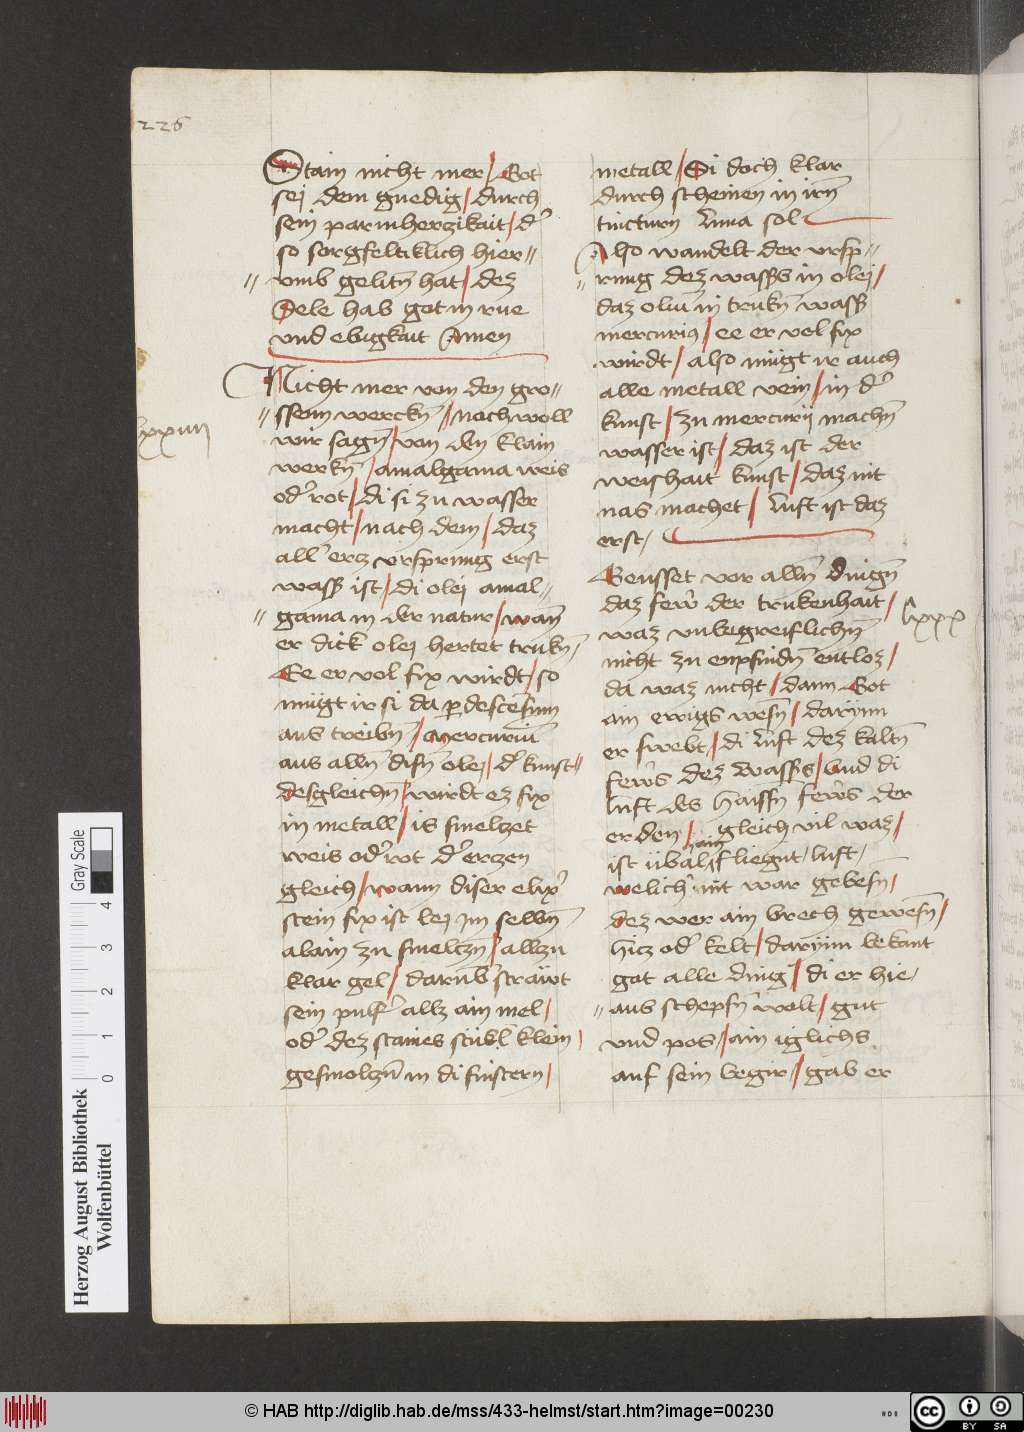 226
Stain nicht mer / Got
sej dem gnedig / durch
sein parmherzikait / d'
so sorgfeltiklich hier=
vmb gelitn̄ hat / dez
Sele hab got in rue
vnd ebigkait Amen
Nicht mer von den gro=
ssem werckn̄ / noch woll
wir sagn̄ / van den klain
werkn̄ / amalgama weis
od' rot / di si zu wasser
macht / nach dem / daz
all' ercz vrsprung erst
wass' ist / di olej amal=
gama in der natur / wan̄
er dick olej hertet trukn̄ /
Ee er vol fix wirdt / so
mügt ir si da p descensum
aus treibn̄ / Mercuriū
aus alln̄ disn̄ olej / d' kunst=
desgleichn̄ / wirdt ez fix
in metall / is smelczet
weis od' rot d' erczen
gleich / wann diser elix'
stein fix ist lej Im selbn̄
alain zu smelczn̄ / allzu
klar gel / darub' sträwt
sein pulf' allz ain mel /
od' dez staines stübl' klein /
gesmolczn̄ in di finstern /
lxxiiij
metall / Si doch klar
durch scheinen in irn̄
tincturn luna sol
Also wandelt der vrsp=
rung dez wass's in olej /
daz oliū in trukn̄ wass'
mercurius / ee er vol fix
wirdt / also mügt ir auch
alle metall vein / in d'
kunst / zu mercurij machn̄
wasser ist / daz ist der
weishait kunst / daz nit
nas machet / luft ist daz
erst /
Gensset vor alln̄ dingn̄
daz fewr der trukenhait /
waz vnbegreiflichn̄
nicht zu enpfindn̄ entloz /
da waz nicht / dann Got
ain ewigs wesn̄ / darynn
er swebt / di luft dez kaltn̄
fewrs dez Wass's / vnd di
luft des haissn̄ fewrs der
erden / gleich vil waz /
ist übal ain f liegnt / luft /
welich' nit war gebesn̄ /
dez wer ain brech gewesn̄ /
hicz od' kelt / darynn bekant
got alle ding / di er hie /
aus schepfn̄ wolt / gut
vnd pos / ain iglichs
auf sein begir / gab er
lxxx
Herzog August Bibliothek
Wolfenbüttel
0 1 2 3 4
Gray Scale
© HAB http://diglib.hab.de/mss/433-helmst/start.htm?image=00230
cc BY SA